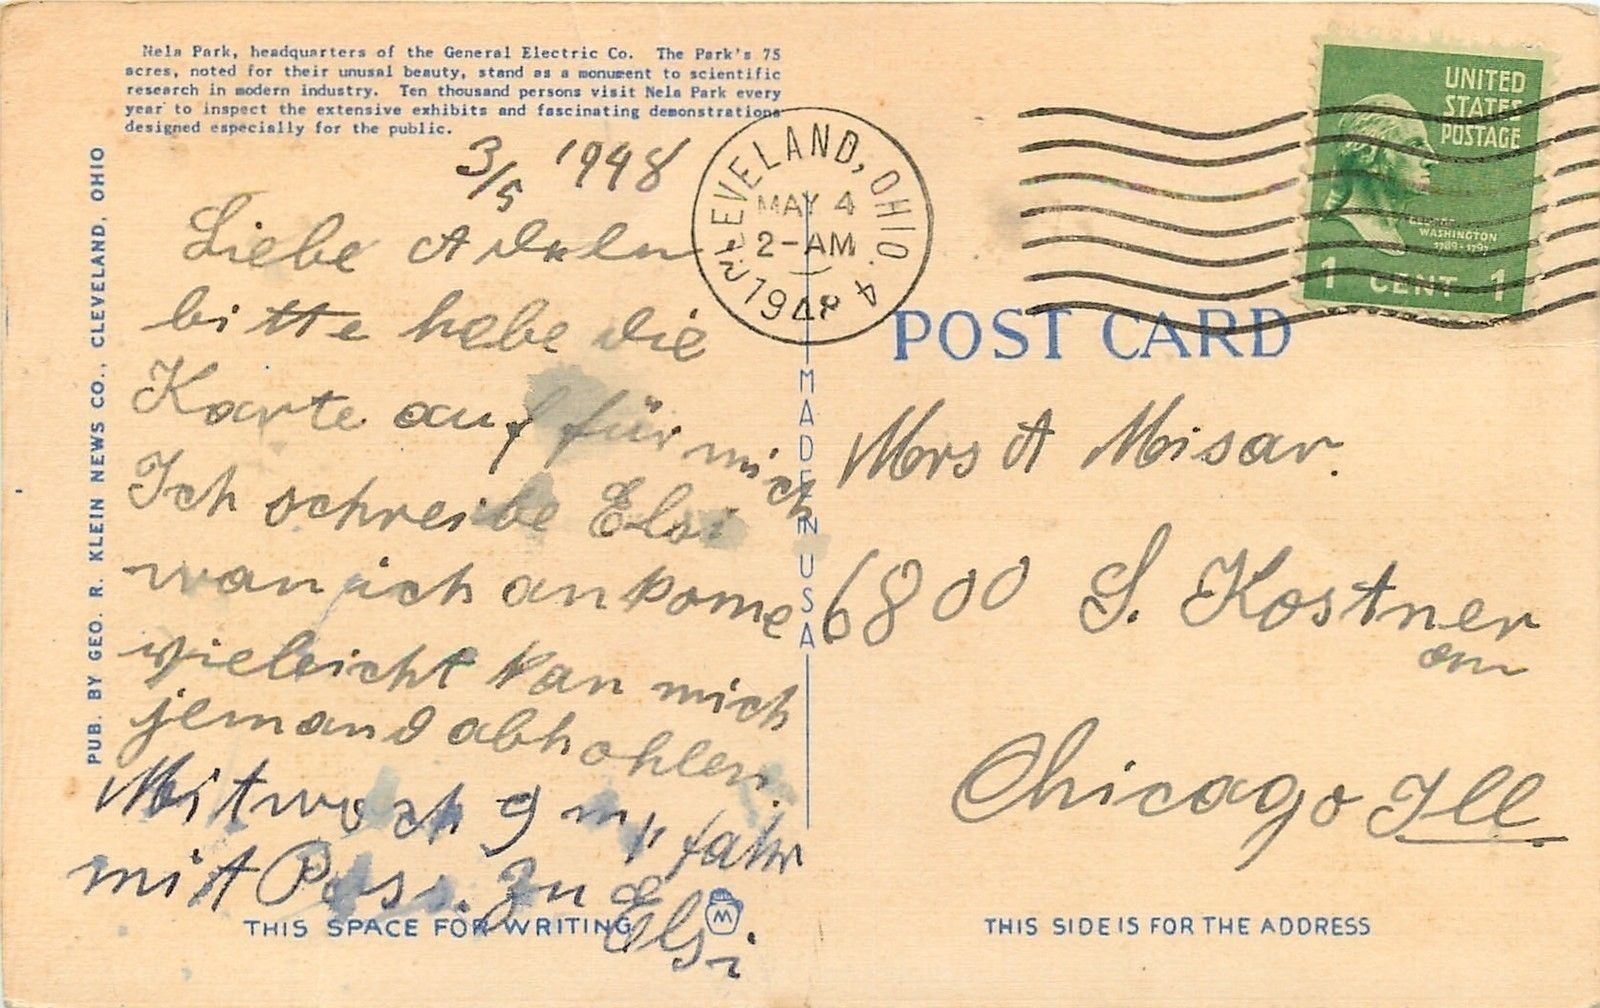 Nela Park, headquarters of the General Electric Co. The Park's 75
acres, noted for their unusal beauty, stand as a monument to scientific
research in modern industry. Ten thousand persons visit Nela Park every
year to inspect the extensive exhibits and fascinating demonstrations
designed especially for the public.
PUB. BY GEO. R. KLEIN NEWS CO., CLEVELAND, OHIO
3/5 1948
Liebe
bitte hebe die
Karte auf für mich
Ich schreibe Elsi
wan ich ankome
vieleicht kan mich
jemand abhohlen.
Mitwoch 9 fahr
mit Pass. zu
Elsi
THIS SPACE FOR WRITING
M
MADE IN USA
CLEVELAND, OHIO. 4
MAY 4
2-AM
1948
UNITED
STATES
POSTAGE
WASHINGTON
1789-1797
1 CENT 1
POST CARD
Mrs A Misar.
6800 S. Kostner
Chicago Ill
THIS SIDE IS FOR THE ADDRESS